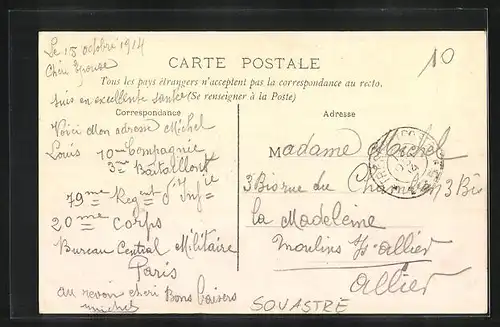 Le 18 octobre 1914
10
CARTE POSTALE
Chéri Epouse
Tous les pays étrangers n'acceptent pas la correspondance au recto.
suis en excellente santé (Se renseigner à la Poste)
Correspondance
Adresse
Voici Mon adresse Michel
Louis 10me Compagnie
3me Bataillont
79me Regent d'Infie
20me Corps
Bureau Central Militaire
Paris
au revoir cheri Bons baisers
michel
Madame Michel
3 Bis rue du 3 Bis
la Madeleine
Moulins s/s allier
allier
SOUASTRE